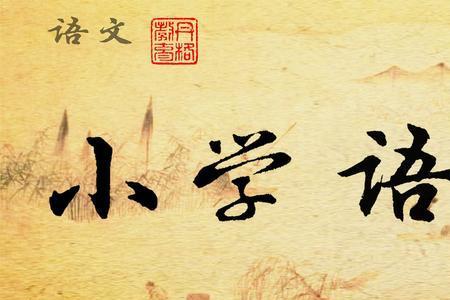 语文
丹格教育
小学语